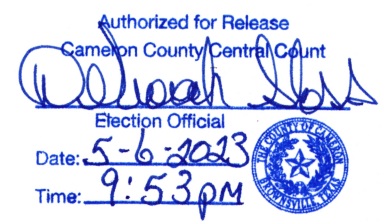 Authorized for Release
Cameron County Central Count
Election Official
Date: 5-6-2023
Time: 9:53 PM
THE COUNTY OF CAMERON
BROWNSVILLE, TEXAS